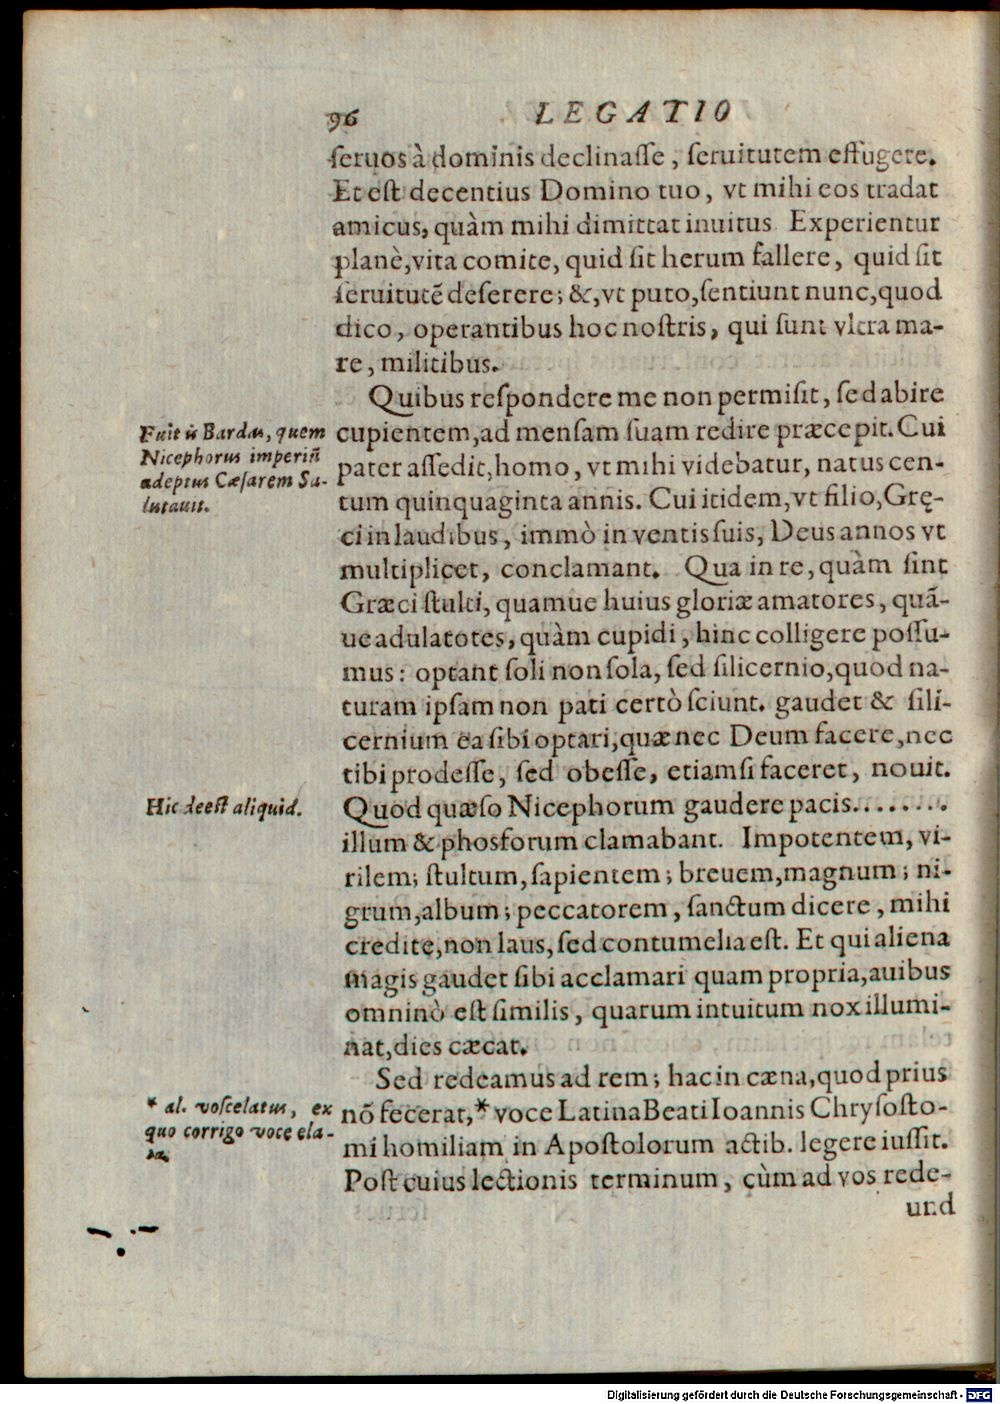 96 LEGATIO
ſeruos à dominis declinaſſe, ſeruitutem effugere.
Et eſt decentius Domino tuo, vt mihi eos tradat
amicus, quàm mihi dimittat inuitus Experientur
planè, vita comite, quid ſit herum fallere, quid ſit
ſeruitutẽ deſerere; &, vt puto, ſentiunt nunc, quod
dico, operantibus hoc noſtris, qui ſunt vltra ma-
re, militibus.
Quibus reſpondere me non permiſit, ſed abire
cupientem, ad menſam ſuam redire præcepit. Cui
pater aſſedit, homo, vt mihi videbatur, natus cen-
tum quinquaginta annis. Cui itidem, vt filio, Grę-
ci in laudibus, immò in ventis ſuis, Deus annos vt
multiplicet, conclamant. Qua in re, quàm ſint
Græci ſtulti, quamue huius gloriæ amatores, quã-
ue adulatores, quàm cupidi, hinc colligere poſſu-
mus: optant ſoli non ſola, ſed ſilicernio, quod na-
turam ipſam non pati certò ſciunt. gaudet & ſili-
cernium ea ſibi optari, quæ nec Deum facere, nec
tibi prodeſſe, ſed obeſſe, etiamſi faceret, nouit.
Quod quæſo Nicephorum gaudere pacis........
illum & phosforum clamabant. Impotentem, vi-
rilem; ſtultum, ſapientem; breuem, magnum; ni-
grum, album; peccatorem, ſanctum dicere, mihi
credite, non laus, ſed contumelia eſt. Et qui aliena
magis gaudet ſibi acclamari quam propria, auibus
omninò eſt ſimilis, quarum intuitum nox illumi-
nat, dies cæcat.
Sed redeamus ad rem; hac in cæna, quod prius
nõ fecerat, * voce Latina Beati Ioannis Chryſoſto-
mi homiliam in Apoſtolorum actib. legere iuſſit.
Poſt cuius lectionis terminum, cùm ad vos rede-
und
Fuit is Bardas, quem
Nicephorus imperiũ
adeptus Cæſarem Sa-
lutauit.
Hic deeſt aliquid.
* al. voſcelatus, ex
quo corrigo voce ela-
ta.
Digitalisierung gefördert durch die Deutsche Forschungsgemeinschaft - DFG